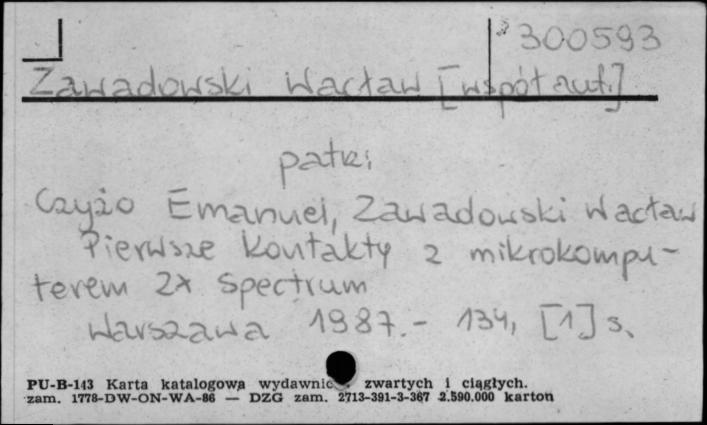 300593
Zawadowski Wacław [współaut.]
patrz:
Czyżo Emanuel, Zawadowski Wacław
Pierwsze kontakty z mikrokompu-
terem ZX Spectrum
Warszawa 1987.- 134, [1] s.
PU-B-143 Karta katalogowa wydawnic zwartych i ciągłych.
zam. 1778-DW-ON-WA-86 — DZG zam. 2713-391-3-367 2.590.000 karton